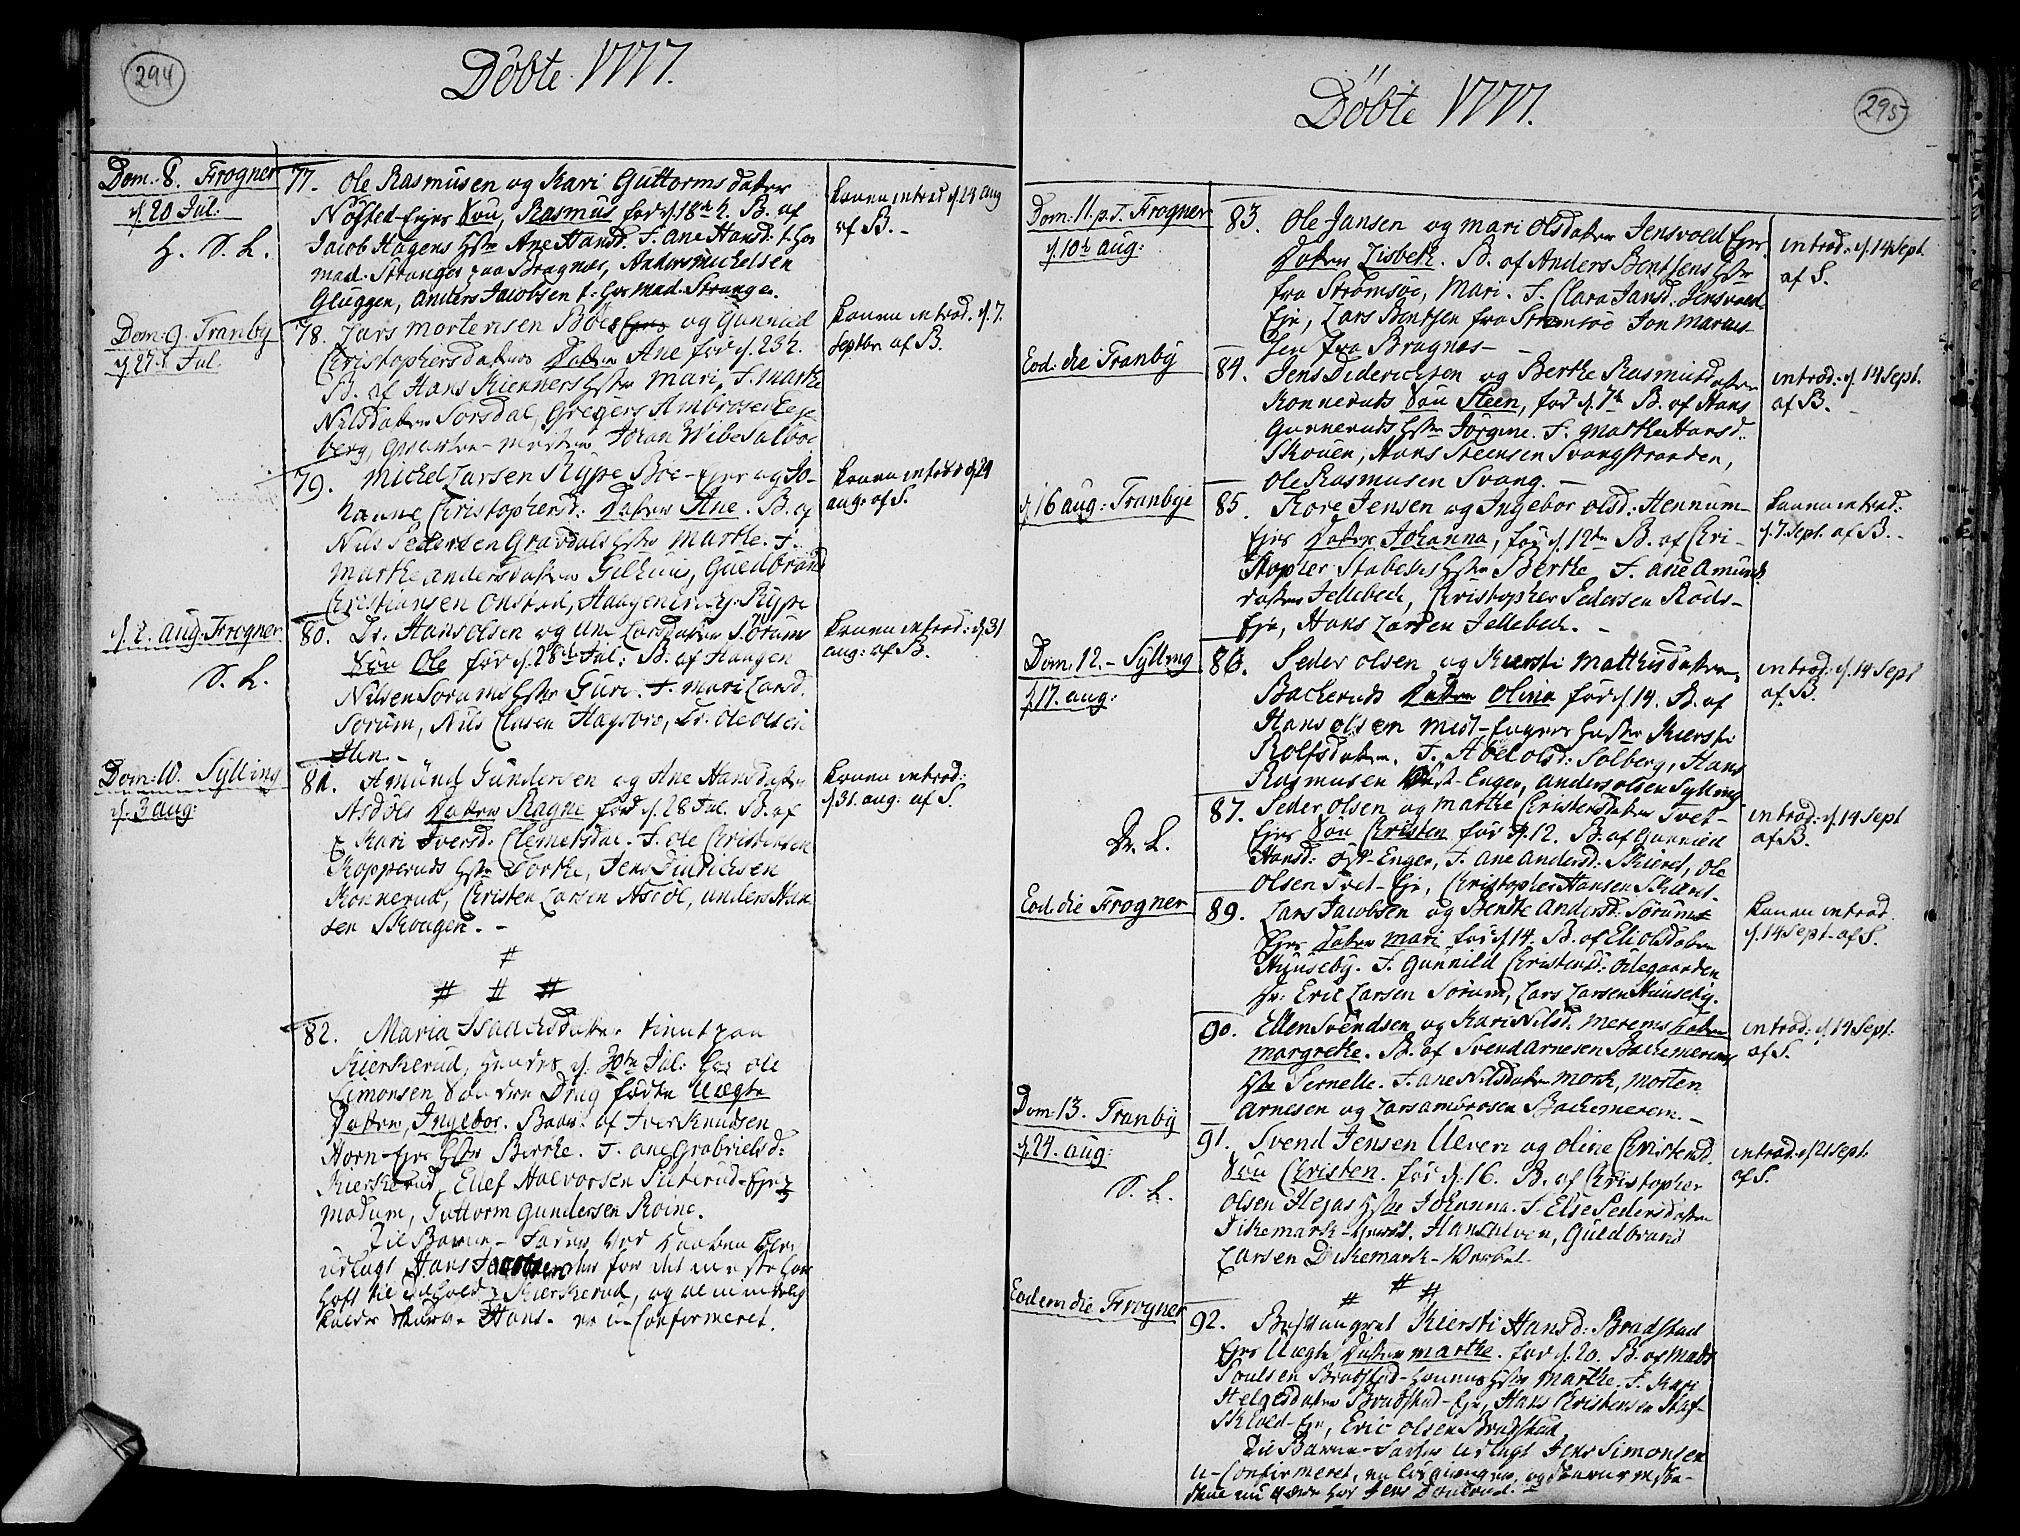 294
Döbte 1777.
Dom. 8. Frogner
d. 20 Jul:
H. S. L.
77. Ole Rasmusen og Kari Guttorms datter
Nösted-Ejes Sön, Rasmus föd d. 18de h. B. af
Jacob Hagens Hstr Ane Hansd. F. Ane Hansd: t. hos
mad. Stranger paa Bragnes, Anders Michelsen
Gluggen, Anders Jacobsen t. hos mad. Strange.
Konen introd d. 24 Aug
af B. -
Dom. 9. Tranby
d. 27. Jul.
78. Lars Mortensen Böes og Gunnild
Christophersdatters Datter Ane föd d. 23 h.
B. af Hans Kienners Hstr Mari, F. Marthe
Nilsdatter Sorsdal, Gregers Ambrosen Eje
berg, Johan Wibe
Konen introd. d. 7.
Septbr af B.
79. Michel Larsen Rype Böe-Ejes og Jo-
hanne Christophersd: Datter Ane. B. af
Nils Pedersen Gravdals Hstr Marthe. F.
Marthe Andersdatter Gilhuus, Guldbrand
Christiansen Onstad, Haagen Rype
Konen introd d. 24
aug. af S.
d. 2. Aug. Frogner
S. L.
80. Dr. Hans Olsen og Larsdatter Sörums
Sön Ole föd d. 28de Jul: B. af Haagen
Nilsen Sorums Hstr Guri. F. Mari Larsd.
Sorum, Nils Clasen Hagebro, Dr. Ole Olsen
Sten. -
Konen introd: d. 31
aug: af B.
Dom: 10. Sylling
d. 3 aug:
81. Amund Gundersen og Ane Hansdatter
Asdöls Datter Ragne föd d. 28 Jul. B. af
Kari Iversd. Clemetsdal. F. Ole Christensen
Kopperuds Hstr Dorthe, Jens Diderichsen
Konnerud, Christen Larsen Asdöl, Anders Han
sen Skougen. -
Konen introd:
d. 31. aug: af S.
#
# # #
82. Maria datter tient paa
Kierkerud, hendes d. 30te Jul: hos Ole
Simonsen födte Uægte
Datter, Ingebor. Baar. af Iver Knudsen
Horn-Ejes Hstr Berthe. F. Ane Gabrielsd:
Kierkerud, Ellef Halvorsen Ejet
Modum, Guttorm Gundersen Roine.
Til Barne-Fader ved Daaben blev
udlagt Hans for det meste har
haft til Kierkerud, og almindelig
kaldes Hans. er u-Confirmeret.
295
Döbte 1777.
Dom: 11. p. T. Frogner
d. 10de aug:
83. Ole Jansen og Mari Olsdatter Jensvold Ejes
Datter Lisbeth. B. af Anders Bentsens Hstr
fra Strömsöe, Mari. F. Clara Jansd: Jensvold
Eje, Lars Bentsen fra Strömsöe Jon Marcus
sen fra Bragnes -
introd: d. 14 Sept.
af S.
Eod: die Tranby
84. Jens Diderichsen og Berthe Rasmusdatter
Konneruds Sön Steen, föd d. 7de B. af Hans
Gunneruds Hstr Jörgine. F. Marthe Hansd.
Skouen, Hans Steensen Svangstranden,
Ole Rasmusen Svang. -
introd: d. 14 Sept.
af B.
d. 16 aug: Tranbye
85. Tore Jensen og Ingebor Olsd: Hennum-
Ejes Datter Johanna, föd d. 12te B. af Chri-
stopher Stabeks Hstr Berthe F. Ane Amunds
datter Jellebech, Christopher Pedersen Röds-
Eje, Hans Larsen Jellebech. -
Konen introd:
d. 7. Sept. af B. -
Dom: 12. - Sylling
d. 17. aug:
86. Peder Olsen og Kiersti Matthisdatter
Bacheruds Datter Olina föd d. 14. B. af
Hans Olsen Mest-Enger Kiersti
Rolfsdatter. F. Abel Olsd: Solberg, Hans
Rasmusen Enger, Anders Olsen Sylling.
introd: d. 14 Sept
af B.
87. Peder Olsen og Marthe Christensdatter Tvet-
Ejes Sön Christen föd d. 12. B. af Gunnild
Hansd: Öst-Enger, F. Ane Andersd: Skieret, Ole
Olsen Tvet-Eje, Christopher Hansen Skieret.
introd: d. 14 Sept
af B.
S. L.
Eod: die Frogner
89. Lars Jacobsen og Benthe Andersd. Sorums
Ejes Datter Mari föd d. 14. B. af Eli Olsdatter
Huuseby. F. Gunnild Christensd: Ödegaarden
Hr. Eric Larsen Sorum, Lars Larsen Huuseby.
Konen introd.
d. 14 Sept. af S.
90. Ellen Svendsen og Kari Nilsd. Merens Datter
Margrethe. B. af Svend Arnesen Bachemerens
Hstr Pernelle. F. Ane Nilsdatter Morch, Morten
Arnesen og Lars Ambrosen Bachemeren. -
introd: d. 14 Sept.
af S.
Dom. 13. Tranby
d. 24. aug:
S. L.
91. Svend Jensen Ulven og Oline Christensd.
Sön Christen. föd d. 16. B. af Christopher
Olsen Hegas Hstr Johanna. F. Else Pedersdatter
Dikemark-Værket, Hans Ulven, Guldbrand
Larsen Dikemark-Værket.
introd. d. 21 Sept.
af S.
# # #
Eodem die Frogner
92. Besvangret Kiersti Hansd: Bradstad
Ejes Uægte Datter Marthe. föd d. 20. B. af Mads
Poulsen Bradstad-Hstr Marthe. F. Kari
Helgesdatter Bradstad-Eje, Hans Christensen Staf-
skiold-Eje, Eric Olsen Bradstad
Til Barne-Fader udlagt Jens Simonsen
u-Confirmeret, en og
nu være hos Jens